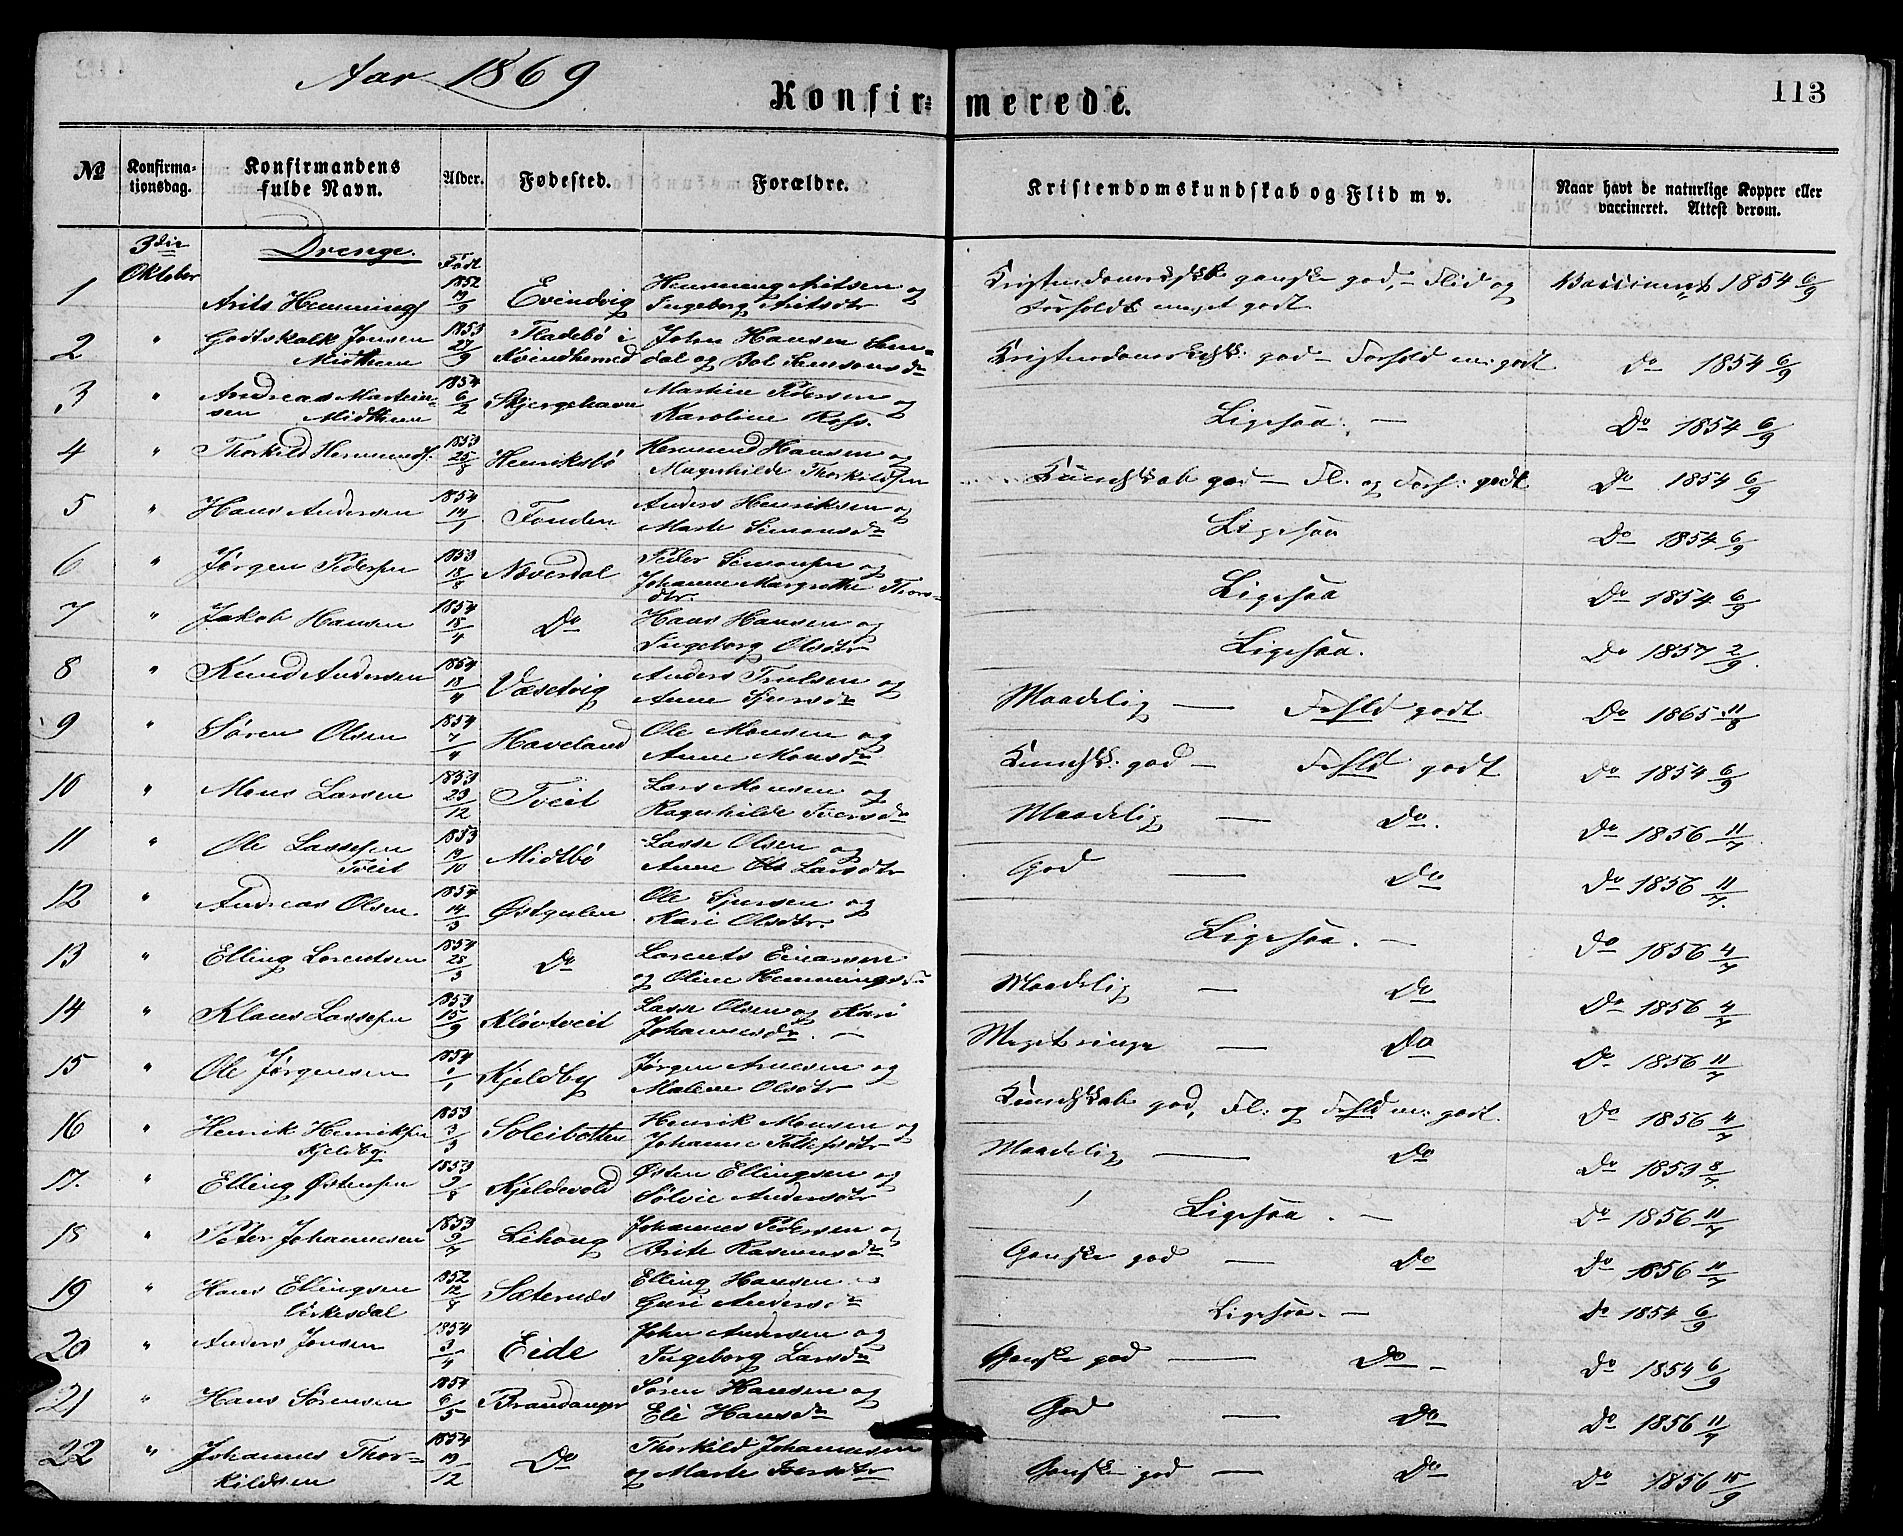 Aar 1869
Konfirmerede.
113
№ Konfirmationsdag. Konfirmandens fulde Navn. Alder. Fødested. Forældre. Kristendomskundskab og Flid m v. Naar havt de naturlige Kopper eller vaccineret. Attest derom.
3die Oktober Drenge. Født
1 Arits Hennings 1852 19/9 Evindvig Henning Aritsen og Ingeborg Aritsdtr Kristendomskdsk ganske god, - Flid og Forhold meget godt Vaccineret 1854 6/9
2 " Godtskalk Jonsen Midttun 1853 27/9 Fladebø i Kvindherred John Hansen og Bol Kristendomskdsk: god - Forhold m: godt Do 1854 6/9
3 " Andreas Martinsen Midttun 1854 6/2 Skjergehavn Martin Pedersen og Karoline Ross. Ligesaa. - Do 1854 6/9
4 " Thorkild Hermunds. 1853 25/8 Henriksbø Hermund Hansen og Magnhilde Thorkildsen Kundskab god - Fl: og Forh: godt Do 1854 6/9
5 " Hans Andersen 1854 14/1 Tonden Anders Henriksen og Marte Simonsdr Ligesaa Do 1854 6/9
6 " Jørgen Pedersen 1853 18/8 Næverdal Peder Simonsen og Johanne Margrethe Thorsdtr. Ligesaa Do 1854 6/9
7 " Jakob Hansen 1854 18/4 Do Hans Hansen og Ingeborg Olsdtr Ligesaa. Do 1857 2/9.
8 " Knud Andersen 1854 18/4 Væsetvig Anders Trulsen og Anne Sjursdr Maadelig - Forhld godt Do 1865 11/8
9 " Søren Olsen 1854 7/4 Haveland Ole Monsen og Anne Monsdr Kundsk: god - Forhld godt Do 1854 6/9
10 " Mons Larsen 1853 23/12 Tveit Lars Monsen og Ragnhilde Iversdr Maadelig - Do. Do 1856 11/7
11 " Ole Lassesen Tveit 1853 19/10 Midtbø Lasse Olsen og Anne Larsdtr God - Do Do 1856 11/7.
12 " Andreas Olsen 1854 14/3 Østgulen Ole Sjursen og Kari Olsdtr. Ligesaa. - Do 1856 4/7
13 " Elling Lorentsen 1854 25/3 Do Lorents Einarsen og Oline Henningsdr Maadelig - Do Do 1856 4/7
14 " Klaus Lassesen 1853 15/9 Kløvtveit Lasse Olsen og Kari Johannesdr. - Meget ringe - Do Do 1856 11/7
15 " Ole Jørgensen 1854 1/1 Kjeldby Jørgen Arnesen og Malene Olsdtr Kundskab god, Fl: og Forhld m: godt Do 1856 4/7
16 " Henrik Henriksen Kjeldby 1853 3/3 Soleibotten Henrik Monsen og Johanne Maadelig - Do Do 1853 8/7.
17. " Elling Østensen 1853 3/8 Kjeldevold Østen Ellingsen og Sølvie Andersdtr Ligesaa. - Do 1856 11/7
18 " Peter Johannesen 1853 9/7 Lihoug Johannes Pedersen og Brite Rasmusdr Ganske god - Do Do 1856 11/7
19 " Hans Ellingsen Virkesdal 1852 12/8 Sæternæs Elling Hansen Guri Andersdr Ligesaa. - Do 1854 6/9
20 " Anders Jonsen 1854 3/4 Eide John Andersen og Ingeborg Larsdr Ganske god - Do - Do 1854 6/9
21 " Hans Sørensen 1854 6/5 Brandanger Søren Hansen og Eli Hansdr God - Do Do 1856 11/7
22 " Johannes Thorkildsen 1854 19/12 Do Thorkild Johannesen og Marte Iversdtr Ganske god - Do Do 1856 15/9